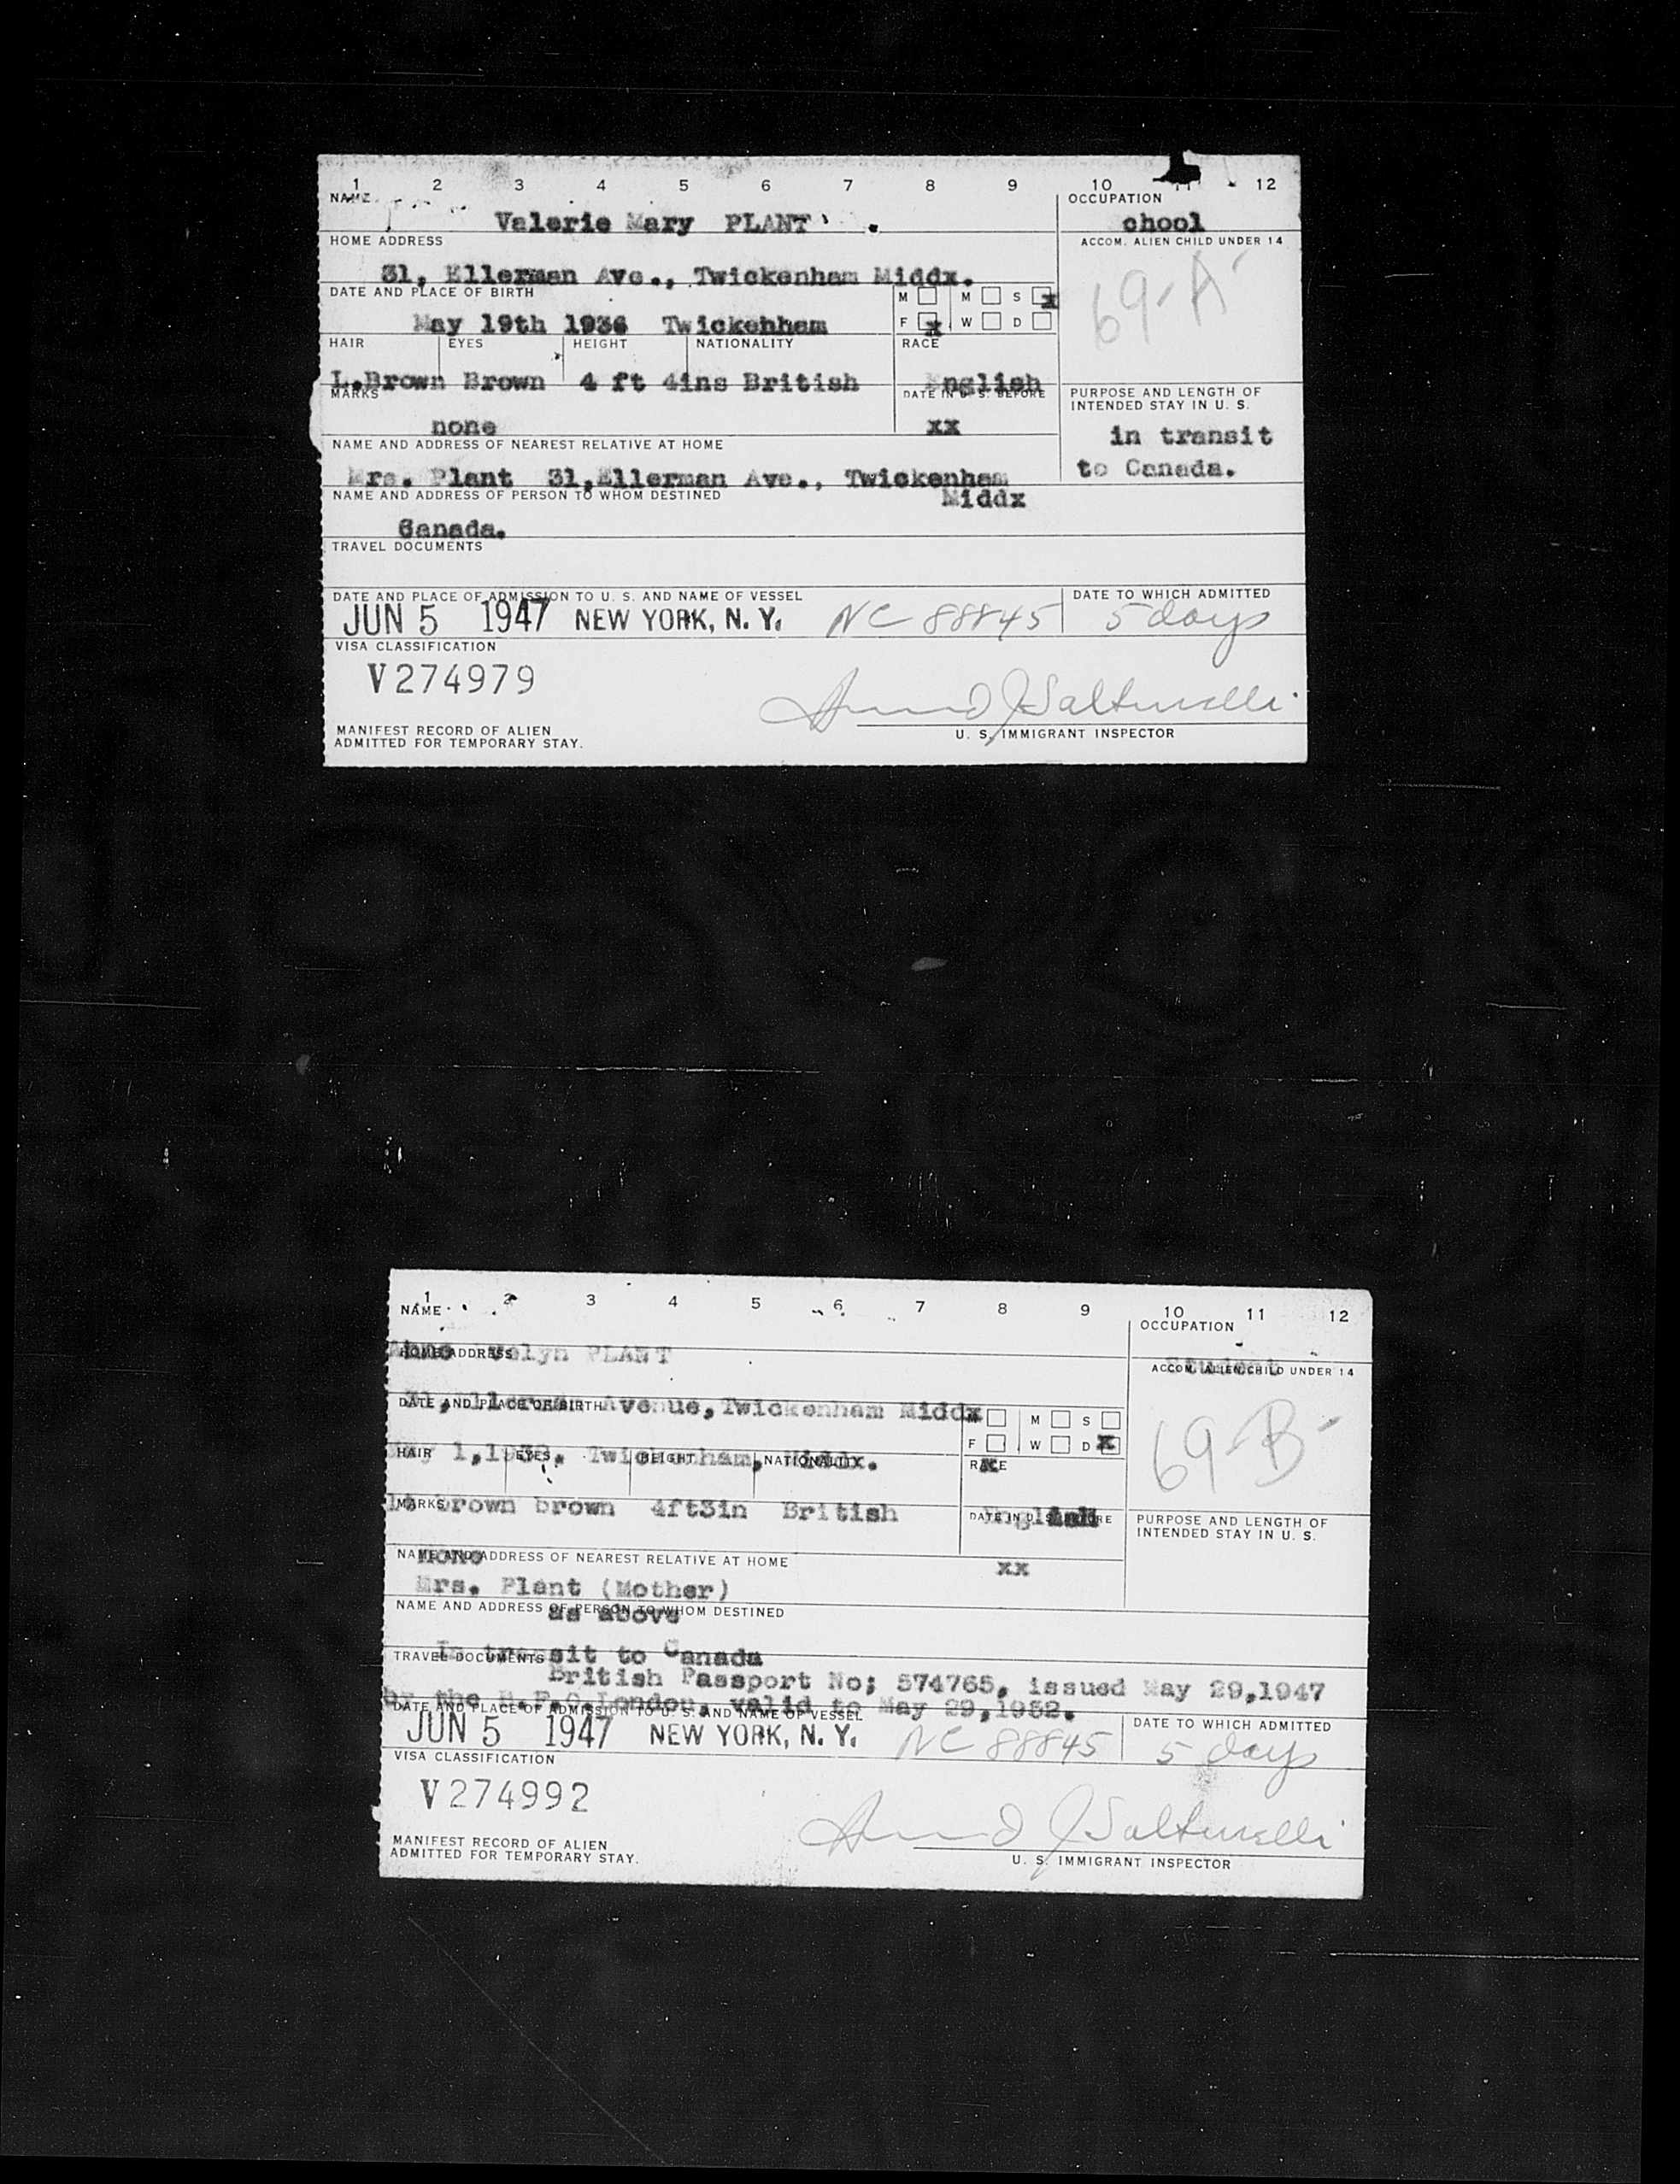 1 2 3 4 5 6 7 8 9 10 11 12
NAME OCCUPATION
Valerie Mary PLANT chool
HOME ADDRESS ACCOM. ALIEN CHILD UNDER 14
31, Ellerman Ave., Twickenham Middx. 69-A
DATE AND PLACE OF BIRTH M M S x
May 19th 1936 Twickehham F x W D
HAIR EYES HEIGHT NATIONALITY RACE
L.Brown Brown 4 ft 4ins British English
MARKS DATE IN U. S. BEFORE PURPOSE AND LENGTH OF
INTENDED STAY IN U. S.
none xx in transit
NAME AND ADDRESS OF NEAREST RELATIVE AT HOME
Mrs. Plant 31,Ellerman Ave., Twickenham to Canada.
NAME AND ADDRESS OF PERSON TO WHOM DESTINED Middx
Canada.
TRAVEL DOCUMENTS
DATE AND PLACE OF ADMISSION TO U. S. AND NAME OF VESSEL DATE TO WHICH ADMITTED
JUN 5 1947 NEW YORK, N. Y. NC 88845 5 days
VISA CLASSIFICATION
V274979
MANIFEST RECORD OF ALIEN U. S. IMMIGRANT INSPECTOR
ADMITTED FOR TEMPORARY STAY.
1 2 3 4 5 6 7 8 9 10 11 12
NAME OCCUPATION
PLANT Student
HOME ADDRESS ACCOM. ALIEN CHILD UNDER 14
31, Ellerman Avenue, Twickenham Middx
DATE AND PLACE OF BIRTH M M S 69-B
F W D x
Twickenham, Middx.
HAIR EYES HEIGHT NATIONALITY RACE
Lt brown brown 4ft3in British English
MARKS DATE IN U. S. BEFORE PURPOSE AND LENGTH OF
INTENDED STAY IN U. S.
none xx
NAME AND ADDRESS OF NEAREST RELATIVE AT HOME
Mrs. Plant (Mother)
as above
NAME AND ADDRESS OF PERSON TO WHOM DESTINED
In transit to Canada
TRAVEL DOCUMENTS
British Passport No; 574765, issued May 29,1947
by the London, valid to May 29,1952.
DATE AND PLACE OF ADMISSION TO U. S. AND NAME OF VESSEL DATE TO WHICH ADMITTED
JUN 5 1947 NEW YORK, N. Y. NC 88845 5 days
VISA CLASSIFICATION
V274992
MANIFEST RECORD OF ALIEN U. S. IMMIGRANT INSPECTOR
ADMITTED FOR TEMPORARY STAY.